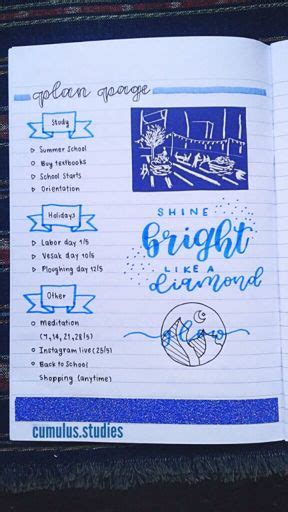 plan page
Study
▷ Summer School
○ Buy textbooks
▷ School starts
▷ Orientation
Holidays
▷ Labor day 1/5
▷ Vesak day 10/5
▷ Ploughing day 12/5
Other
○ Meditation
(7,14,21,28/5)
○ Instagram live (25/5)
○ Back to School
Shopping (anytime)
SHINE
bright
LIKE A
diamond
glow
cumulus.studies